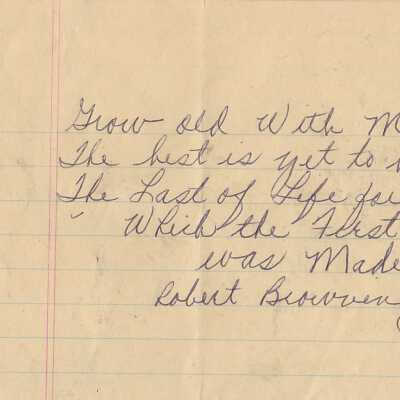 Grow old With M
The best is yet to
The Last of Life for
Which the First
was Made
Robert Browven